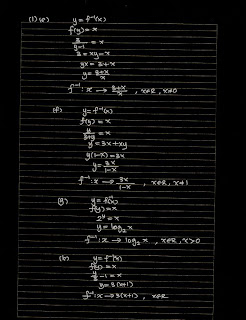 (1) (e) y = f⁻¹(x)
f(y) = x
3/(y-1) = x
3 = xy - x
yx = 3+x
y = (3+x)/x
f⁻¹ : x → (3+x)/x , x∈R, x≠0
(f) y = f⁻¹(x)
f(y) = x
y/(3+y) = x
y = 3x + xy
y(1-x) = 3x
y = 3x/(1-x)
f⁻¹ : x → 3x/(1-x) , x∈R, x≠1
(g) y = f⁻¹(x)
f(y) = x
2^y = x
y = log₂ x
f⁻¹ : x → log₂ x , x∈R, x>0
(h) y = f⁻¹(x)
f(y) = x
y/3 - 1 = x
y = 3(x+1)
f⁻¹ : x → 3(x+1) , x∈R